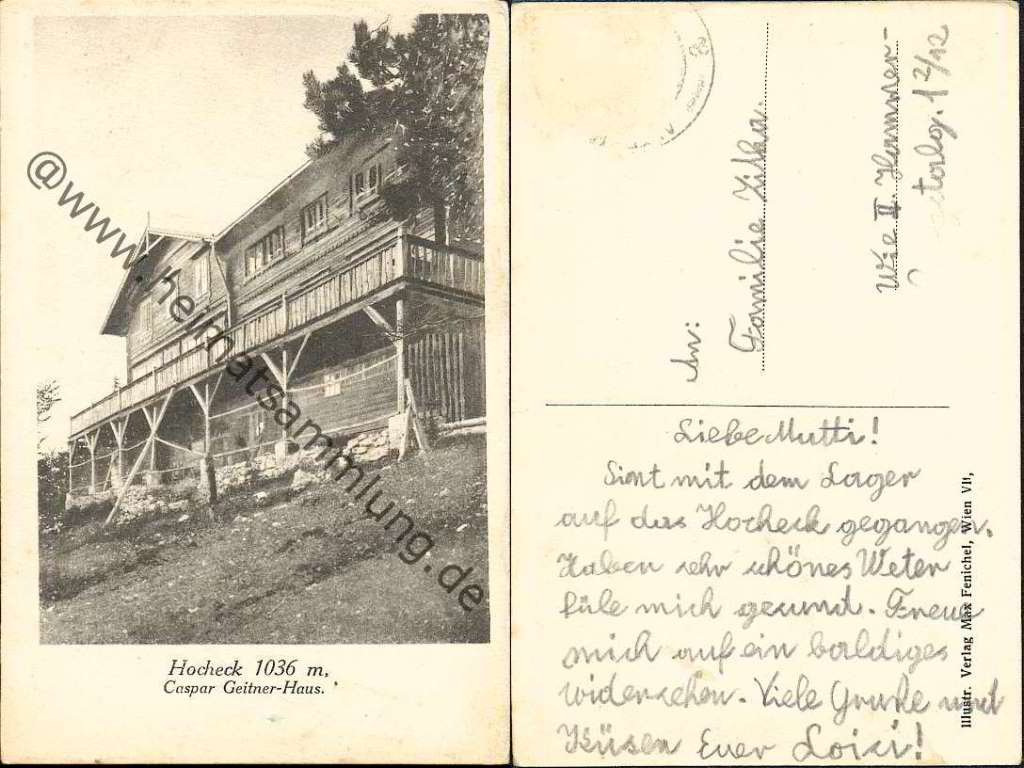 @www.heimatsammlung.de
Hocheck 1036 m,
Caspar Geitner-Haus.
An:
Familie Zitka.
Wie II. Hammer-
1 2/12
Liebe Mutti!
Sint mit dem Lager
auf das Hocheck gegangen.
Haben sehr schönes Weter
füle mich gesund. Freue
mich auf ein baldiges
widersehen. Viele Gruße und
Küsen Euer Loisi!
Illustr. Verlag Max Fenichel, Wien VII,